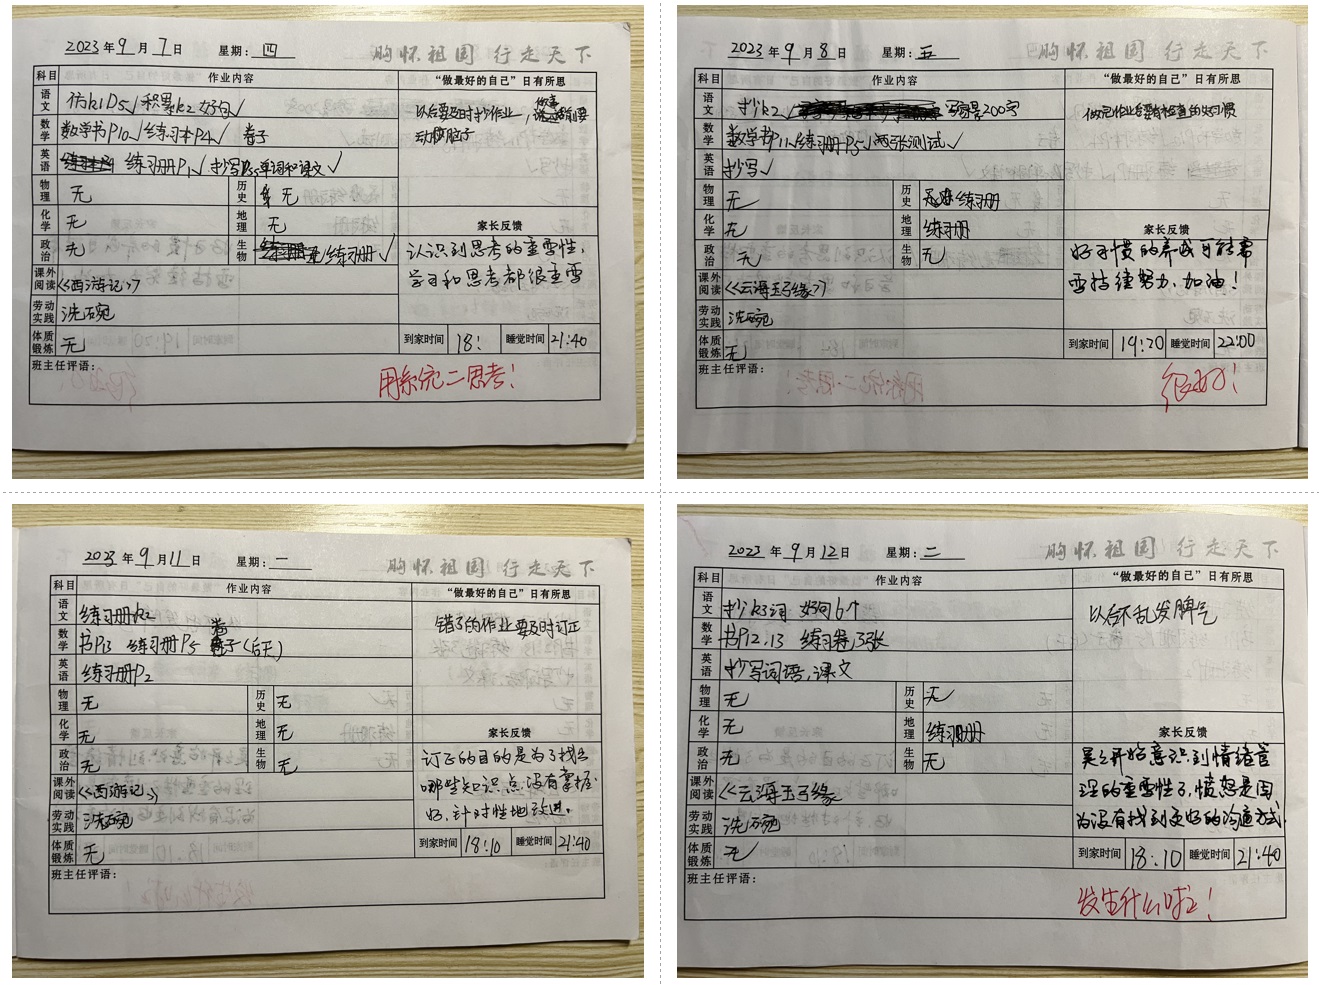 2023年9月7日 星期:四 胸怀祖国 行走天下
科目 作业内容 “做最好的自己”日有所思
语文 仿k1D5√ 积累k2好句√
以后要及时抄作业,
动脑子
数学 数学书P10√ 练习本P4√ 卷子
英语 练习册P1√ 抄写 单词和课文√
物理 无 历史 无
化学 无 地理 无 家长反馈
政治 无 生物 练习册√
认识到思考的重要性,
学习和思考都很重要
课外阅读 《西游记》
劳动实践 洗碗
体质锻炼 无 到家时间 18: 睡觉时间 21:40
班主任评语:
用系统二思考!
2023年9月8日 星期:五 胸怀祖国 行走天下
科目 作业内容 “做最好的自己”日有所思
语文 抄k2√ 写家景200字
做完作业后要有检查的好习惯
数学 数学书P11√ 练习册P5√ 两张测试√
英语 抄写√
物理 无 历史 练习册
化学 无 地理 练习册 家长反馈
政治 无 生物 无
好习惯的养成可能需
要持续努力,加油!
课外阅读 《云海玉弓缘》
劳动实践 洗碗
体质锻炼 无 到家时间 19:20 睡觉时间 22:00
班主任评语:
很好!
2023年9月11日 星期:一 胸怀祖国 行走天下
科目 作业内容 “做最好的自己”日有所思
语文 练习册k2
错了的作业要及时订正
数学 书P13 练习册P5 卷子(后天)
英语 练习册P2
物理 无 历史 无
化学 无 地理 无 家长反馈
政治 无 生物 无
订正的目的是为了找出
哪些知识点没有掌握
好,针对性地改进.
课外阅读 《西游记》
劳动实践 洗碗
体质锻炼 无 到家时间 18:10 睡觉时间 21:40
班主任评语:
2023年9月12日 星期:二 胸怀祖国 行走天下
科目 作业内容 “做最好的自己”日有所思
语文 抄k3词 好句6个
以后不乱发脾气
数学 书P12.13 练习卷 3张
英语 抄写词语,课文
物理 无 历史 无
化学 无 地理 练习册 家长反馈
政治 无 生物 无
昊之开始意识到情绪管
理的重要性了,愤怒是因
为没有找到更好的沟通方式.
课外阅读 《云海玉弓缘
劳动实践 洗碗
体质锻炼 无 到家时间 18:10 睡觉时间 21:40
班主任评语:
发生什么啦?!